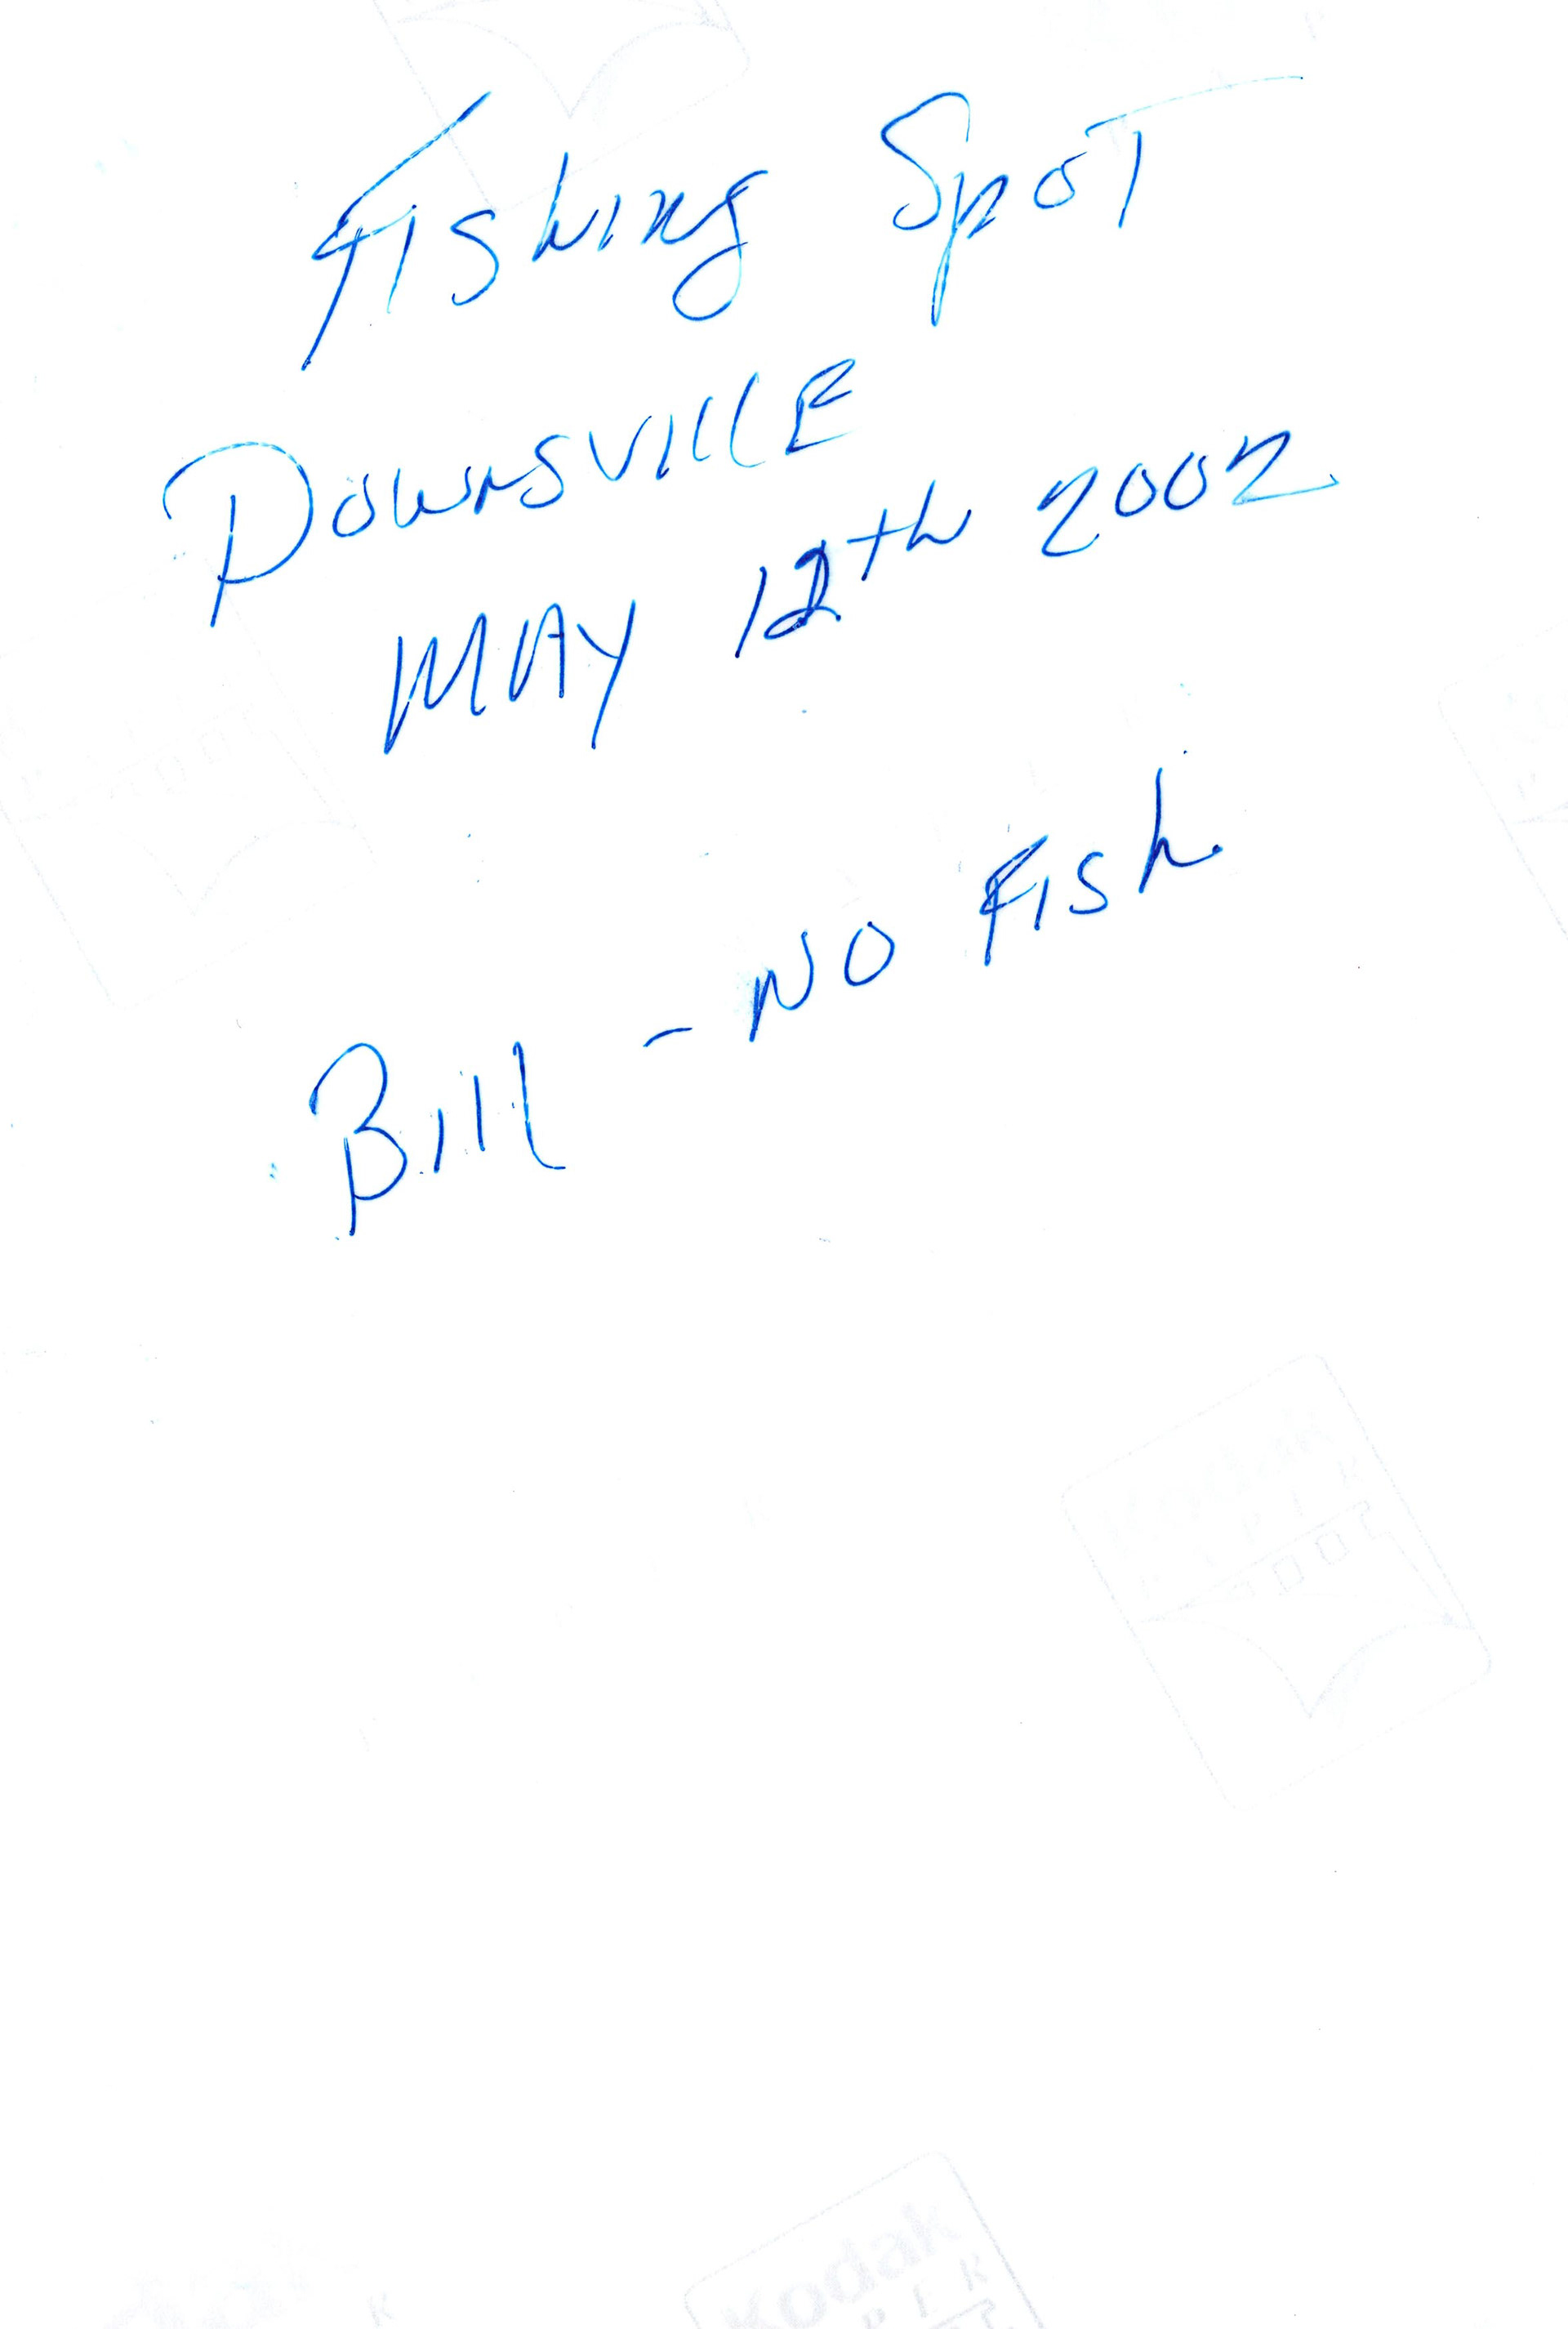 Fishing Spot
Downsville
MAY 12th 2002
Bill - NO Fish
Kodak
Kodak